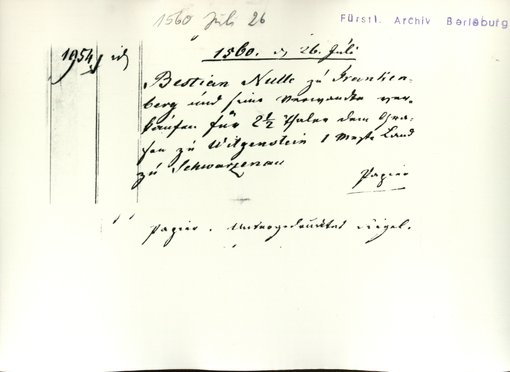 1560 Juli 26
Fürstl. Archiv Berleburg
1954
1560. 26. Juli
Bestian Nulle zu Franken-
berg und seine Verwandte ver-
kaufen für 2 1/2 Thaler dem Gra-
fen zu Witgenstein 1 Meste Land
zu Schwarzenau
Papier
Papier. Untergedrucktes Sigel.